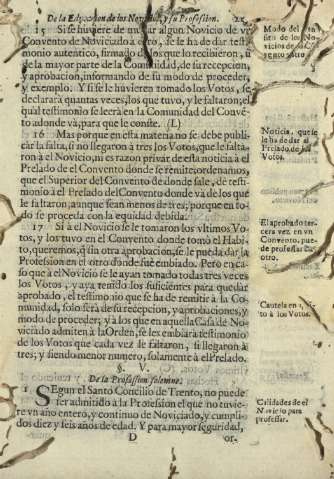 De la Educacion de los Novicios, y su Profession.
15 Si se huviere de mudar algun Novicio de vn
Convento de Noviciado à otro, se le ha de dar testi-
monio autentico, firmado de los que lo recibieron, ù
de la mayor parte de la Comunidad, de su recepcion,
y aprobacion, informando de su modo de proceder,
y exemplo. Y si se le huvieren tomado los Votos, se
declararà quantas veces, los que tuvo, y le faltaron; el
qual testimonio se leerà en la Comunidad del Conve-
to adonde và, para que le conste. (L)
16 Mas porque en esta materia no se debe publi-
car la falta, si no llegaron à tres los Votos, que le falta-
ron à el Novicio, ni es razon privar de esta noticia à el
Prelado de el Convento donde se remite; ordenamos,
que el Superior del Convento de donde sale, dè testi-
monio à el Prelado de el Convento donde và de los que
le faltaron, aunque sean menos de tres; porque en to-
do se proceda con la equidad debida.
17 Si à el Novicio se le tomaron los vltimos Vo-
tos, y los tuvo en el Convento donde tomò el Habi-
to, queremos, q̃ sin otra aprobacion, se le pueda dar la
Profession en el otro donde fuè embiado. Pero en ca-
so que à el Novicio se le ayan tomado todas tres veces
los Votos, y aya tenido los suficientes para quedar
aprobado, el testimonio que se ha de remitir à la Co-
munidad, solo serà de su recepcion, y aprobaciones, y
modo de proceder; y à los que en aquella Casa de No-
viciado admiten à la Orden, se les embiarà testimonio
de los Votos que cada vez le faltaron, si llegaron à
tres; y siendo menor numero, solamente à el Prelado.
§. V.
De la Profession solemne.
1 SEgun el Santo Concilio de Trento, no puede
ser admitido à la Profession el que no tuvie-
re vn año entero, y continuo de Noviciado, y cumpli-
dos diez y seis años de edad. Y para mayor seguridad,
D or-
Modo del
los No-
vicios de
vento à otro.
Noticia, que se
le ha de dar al
Prelado, de los
Votos.
El aprobado ter-
cera vez en vn
Convento, pue-
de professar en
otro.
Cautela en
to à los Votos.
Calidades de el
Novicio para
professar.